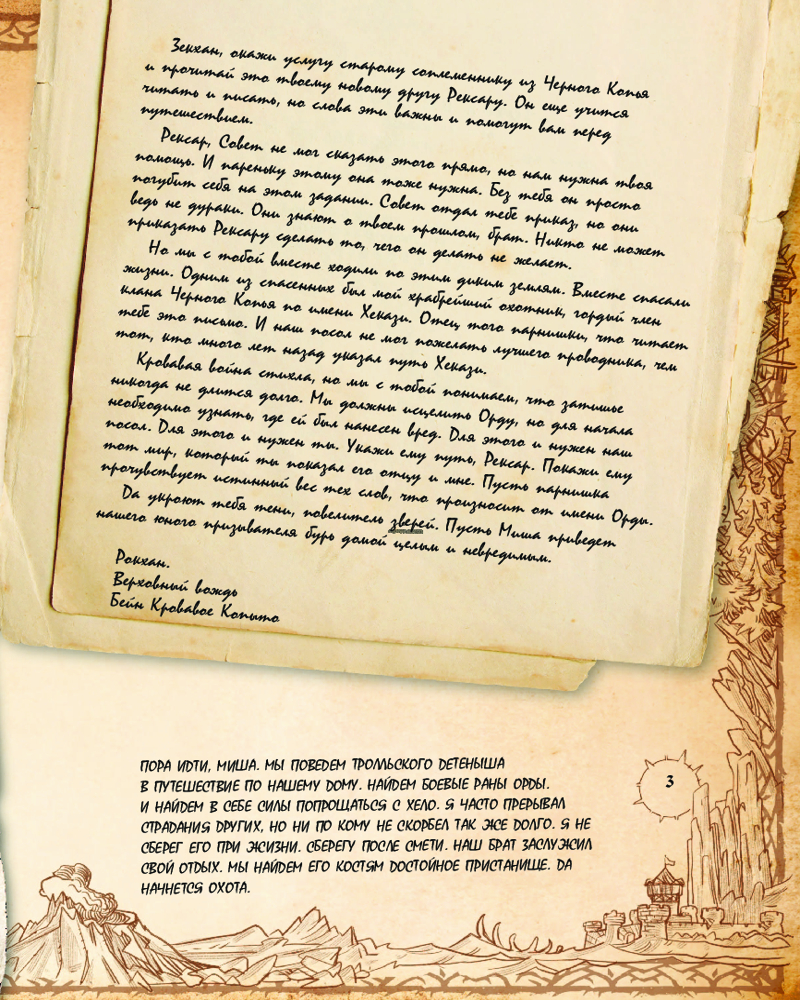 Зекхан, окажи услугу старому соплеменнику из Черного Копья
и прочитай это твоему новому другу Рексару. Он еще учится
читать и писать, но слова эти важны и помогут вам перед
путешествием.
Рексар, Совет не мог сказать этого прямо, но нам нужна твоя
помощь. И пареньку этому она тоже нужна. Без тебя он просто
погубит себя на этом задании. Совет отдал тебе приказ, но они
ведь не дураки. Они знают о твоем прошлом, брат. Никто не может
приказать Рексару сделать то, чего он делать не желает.
Но мы с тобой вместе ходили по этим диким землям. Вместе спасали
жизни. Одним из спасенных был мой храбрейший охотник, гордый член
клана Черного Копья по имени Хекази. Отец того парнишки, что читает
тебе это письмо. И наш посол не мог пожелать лучшего проводника, чем
тот, кто много лет назад указал путь Хекази.
Кровавая война стихла, но мы с тобой понимаем, что затишье
никогда не длится долго. Мы должны исцелить Орду, но для начала
необходимо узнать, где ей был нанесен вред. Для этого и нужен наш
посол. Для этого и нужен ты. Укажи ему путь, Рексар. Покажи ему
тот мир, который ты показал его отцу и мне. Пусть парнишка
прочувствует истинный вес тех слов, что произносит от имени Орды.
Да укроют тебя тени, повелитель зверей. Пусть Миша приведет
нашего юного призывателя бурь домой целым и невредимым.
Рокхан.
Верховный вождь
Бейн Кровавое Копыто
ПОРА ИДТИ, МИША. МЫ ПОВЕДЕМ ТРОЛЛЬСКОГО ДЕТЕНЫША
В ПУТЕШЕСТВИЕ ПО НАШЕМУ ДОМУ. НАЙДЕМ БОЕВЫЕ РАНЫ ОРДЫ.
И НАЙДЕМ В СЕБЕ СИЛЫ ПОПРОЩАТЬСЯ С ХЕЛО. Я ЧАСТО ПРЕРЫВАЛ
СТРАДАНИЯ ДРУГИХ, НО НИ ПО КОМУ НЕ СКОРБЕЛ ТАК ЖЕ ДОЛГО. Я НЕ
СБЕРЕГ ЕГО ПРИ ЖИЗНИ. СБЕРЕГУ ПОСЛЕ СМЕТИ. НАШ БРАТ ЗАСЛУЖИЛ
СВОЙ ОТДЫХ. МЫ НАЙДЕМ ЕГО КОСТЯМ ДОСТОЙНОЕ ПРИСТАНИЩЕ. ДА
НАЧНЕТСЯ ОХОТА.
3